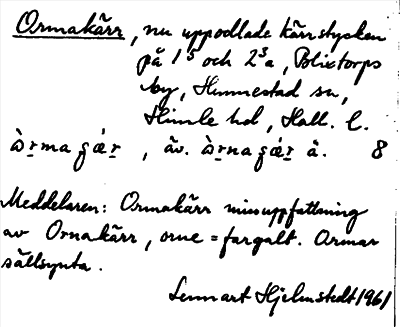 Ormakärr, nu uppodlade kärrstycken
på 1⁵ och 2³a, Blixtorps
by, Hunnestad sn,
Himle hd, Hall. l.
àr̲magǽr̲, äv. àr̲nagǽr̲ å. 8
Meddelaren: Ormakärr missuppfattning
av Ornakärr, orne = fargalt. Ormar
sällsynta.
Lennart Hjelmstedt 1961